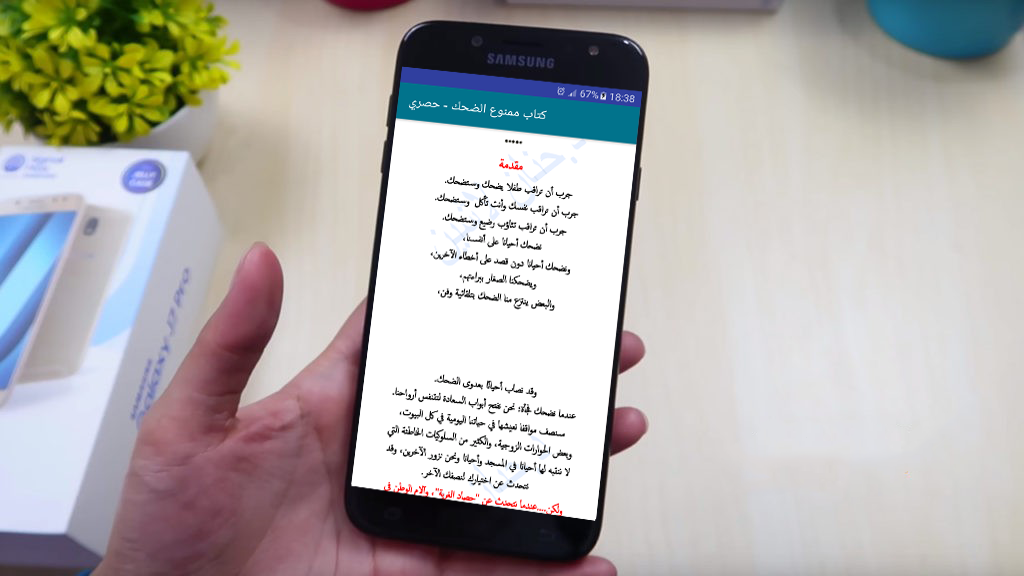 SAMSUNG
67% 18:38
كتاب ممنوع الضحك - حصري
•••••
مقدمة
جرب أن تراقب طفلا يضحك وستضحك.
جرب أن تراقب نفسك وأنت تأكل وستضحك.
جرب أن تراقب تثاؤب رضيع وستضحك.
نضحك أحيانا على أنفسنا،
ونضحك أحيانا دون قصد على أخطاء الآخرين،
ويضحكنا الصغار ببراءتهم،
والبعض ينتزع منا الضحك بتلقائية وفن،
وقد نصاب أحيانًا بعدوى الضحك.
عندما نضحك فجأة؛ نحن نفتح أبواب السعادة لتتنفس أرواحنا.
سنصف مواقفا نعيشها في حياتنا اليومية في كل البيوت،
وبعض الحوارات الزوجية، والكثير من السلوكيات الخاطئة التي
لا ننتبه لها أحيانا في المسجد وأحيانا ونحن نزور الآخرين، وقد
نتحدث عن اختيارك لنصفك الآخر.
ولكن....عندما نتحدث عن "حصاد الغربة"، وآلام الوطن في
SAMSUNG
Galaxy J7 Pro